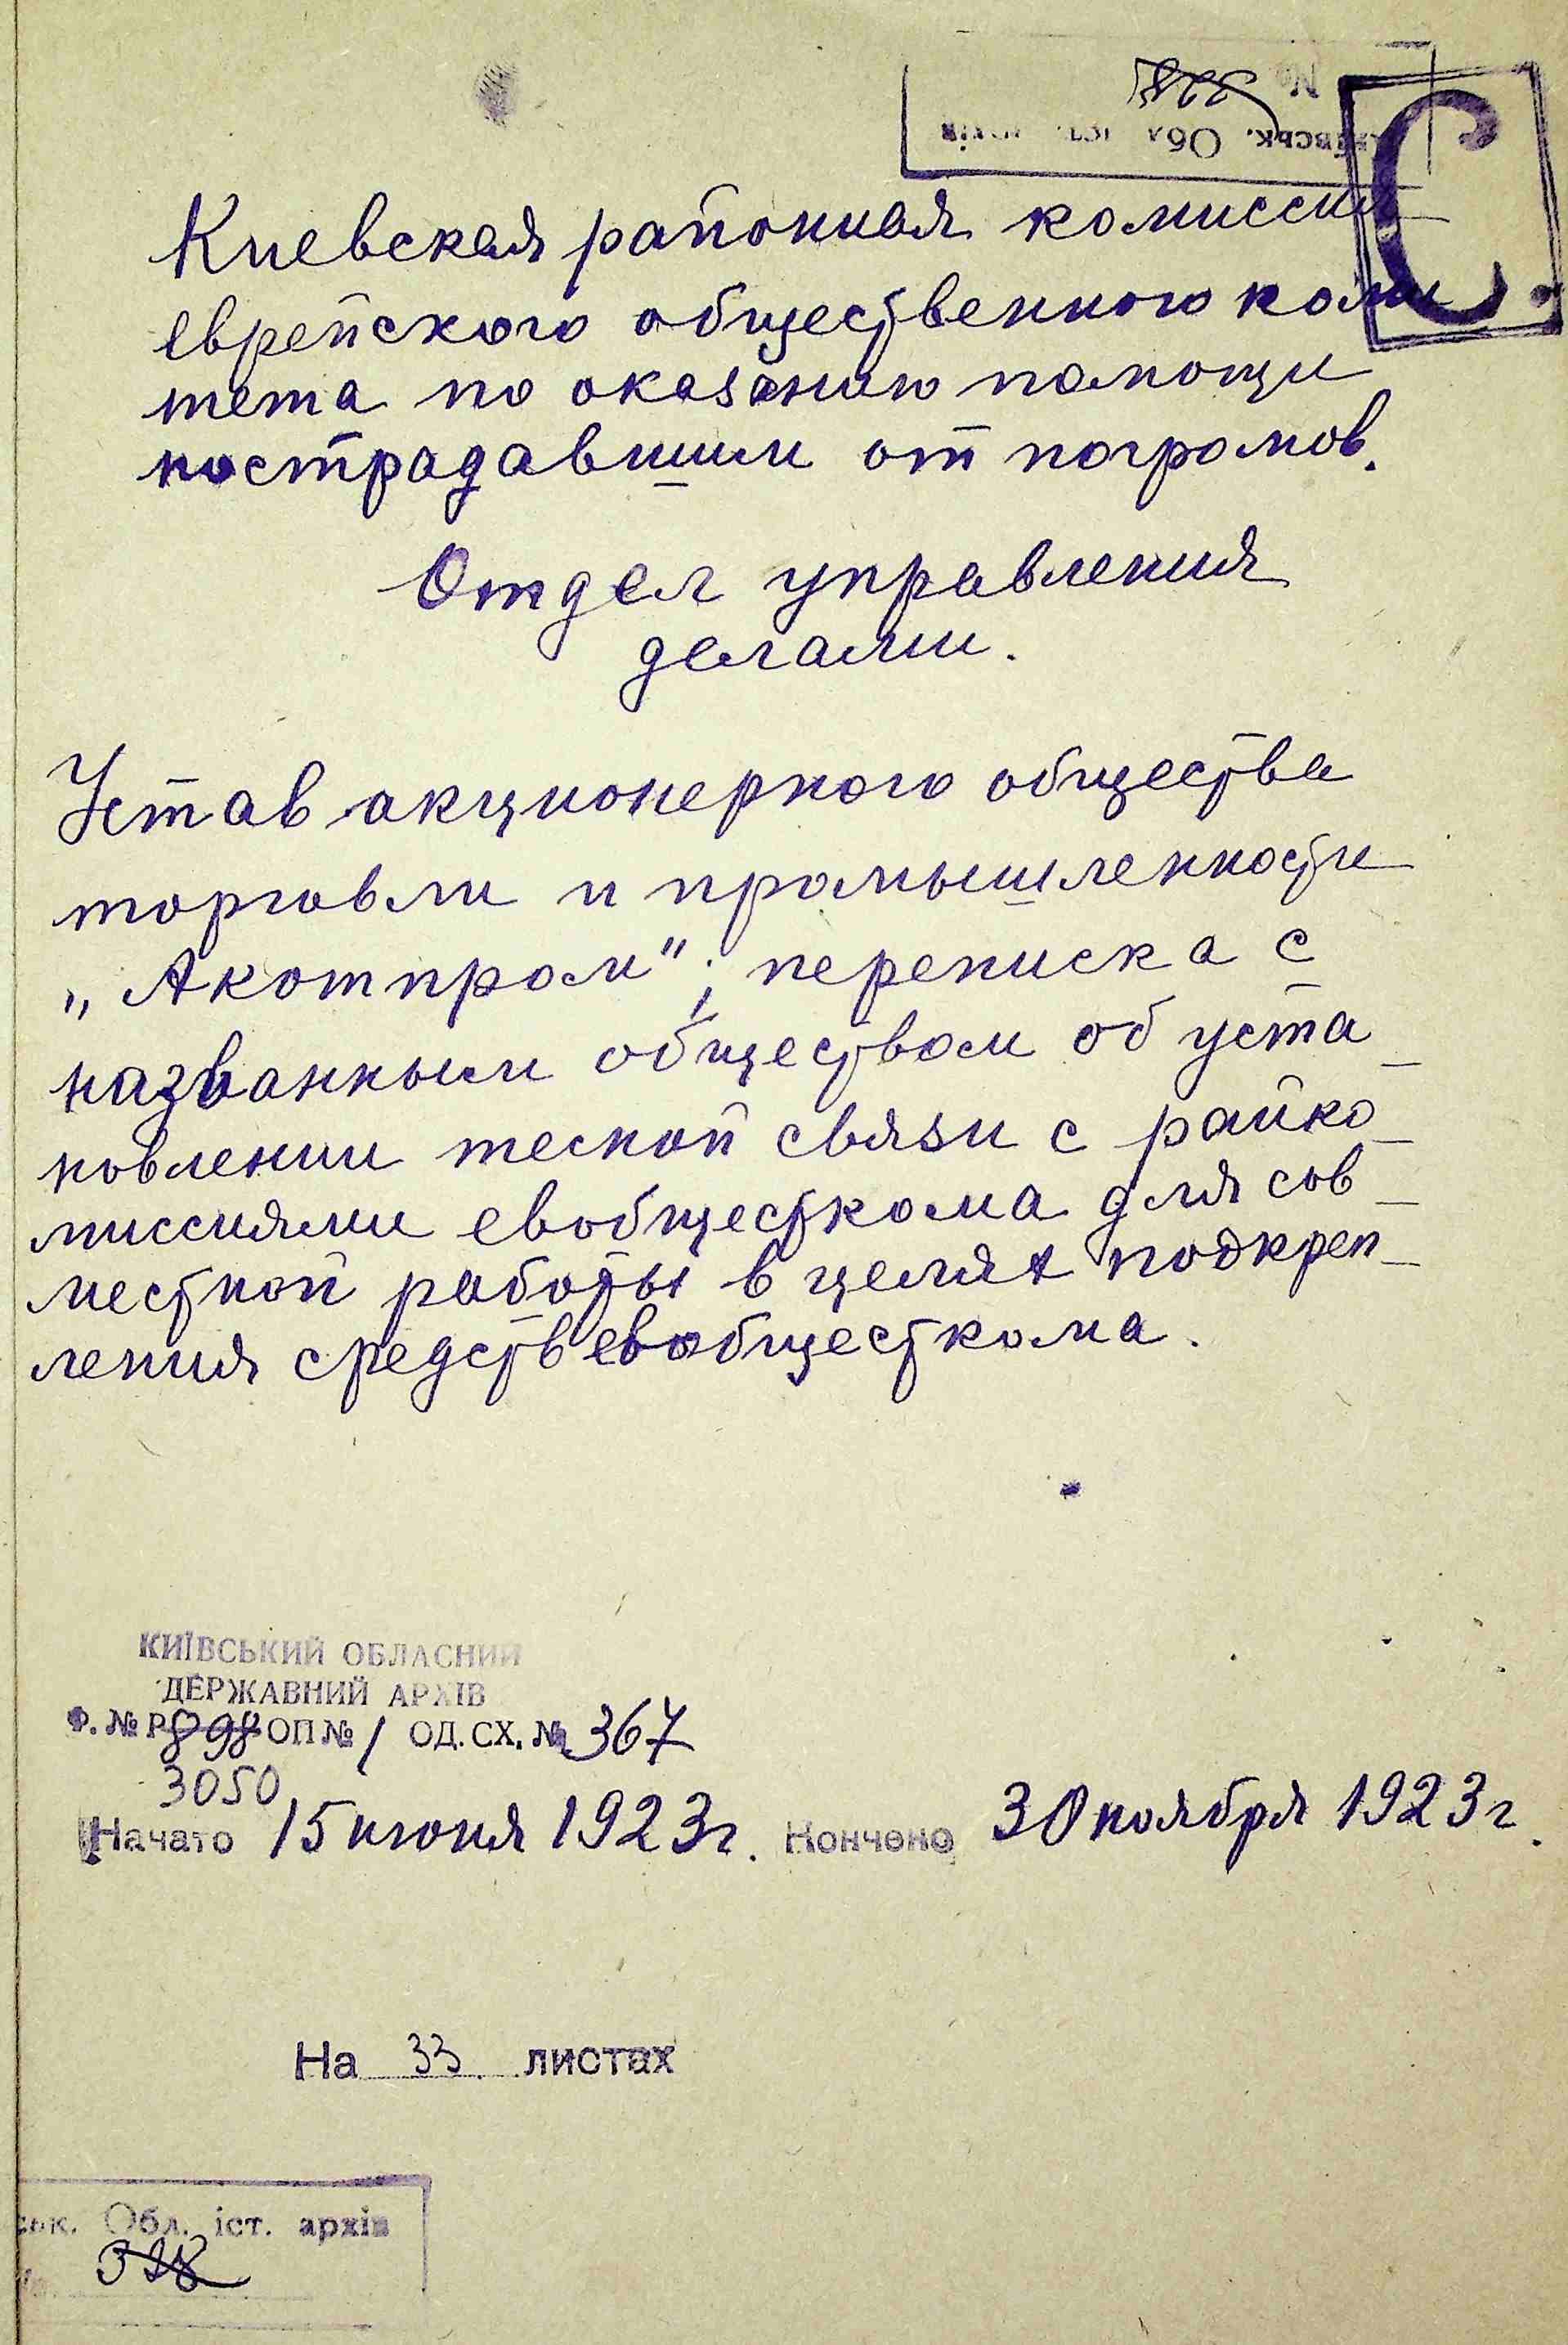 №
Обл. іст. архів
С.
Киевская районная комиссия
еврейского общественного коми
тета по оказанию помощи
пострадавшим от погромов.
Отдел управления
делами.
Устав акционерного общества
торговли и промышленности
„Акотпром"; переписка с
названным обществом об уста-
новлении тесной связи с райко-
миссиями евобщесткома для сов-
местной работы в целях подкреп-
ления средств евобщесткома.
КИЇВСЬКИЙ ОБЛАСНИЙ
ДЕРЖАВНИЙ АРХІВ
Ф. № Р 898 ОП № 1 ОД. СХ. № 367
3050
Начато 15 июня 1923 г. Кончено 30 ноября 1923 г.
На 33 листах
ськ. Обл. іст. архів